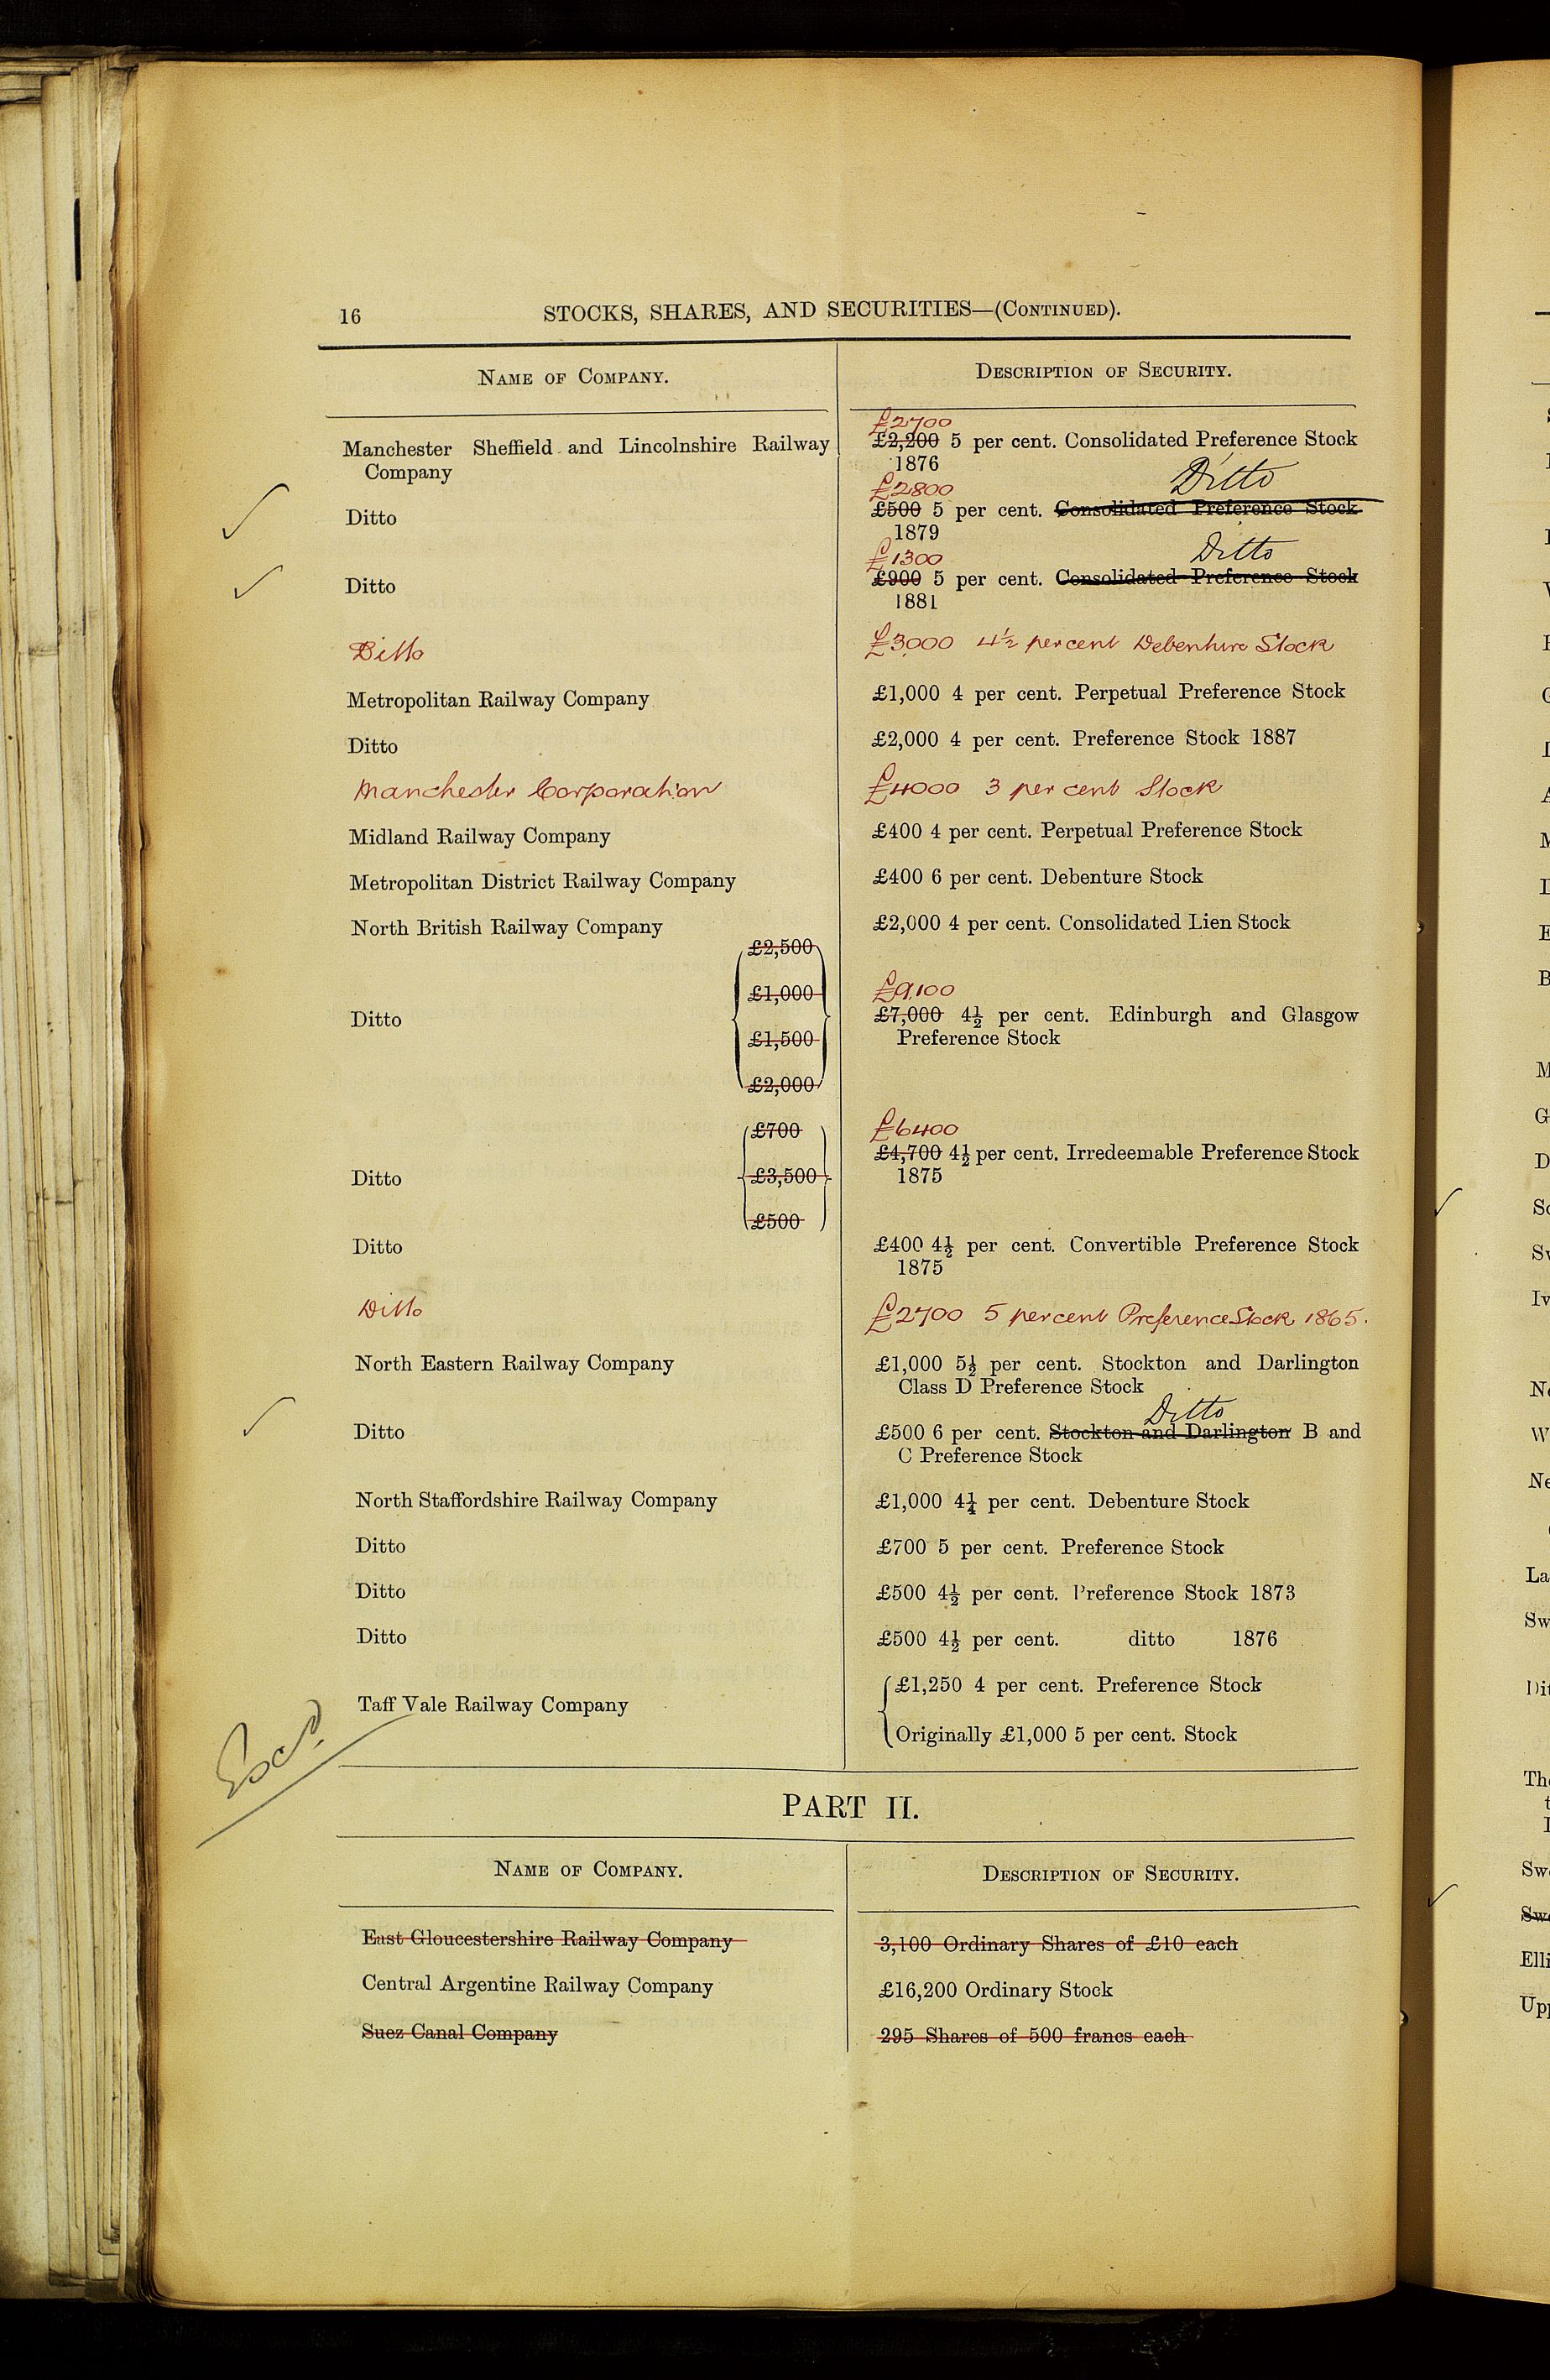 16 STOCKS, SHARES, AND SECURITIES—(CONTINUED).
NAME OF COMPANY. DESCRIPTION OF SECURITY.
£2700
Manchester Sheffield and Lincolnshire Railway £2,200 5 per cent. Consolidated Preference Stock
Company 1876
£2800 Ditto
Ditto £500 5 per cent. Consolidated Preference Stock
1879
£1300 Ditto
Ditto £900 5 per cent. Consolidated Preference Stock
1881
Ditto £3000 4½ per cent Debenture Stock
Metropolitan Railway Company £1,000 4 per cent. Perpetual Preference Stock
Ditto £2,000 4 per cent. Preference Stock 1887
Manchester Corporation £4000 3 per cent Stock
Midland Railway Company £400 4 per cent. Perpetual Preference Stock
Metropolitan District Railway Company £400 6 per cent. Debenture Stock
North British Railway Company £2,000 4 per cent. Consolidated Lien Stock
£2,500
£1,000 £9,100
Ditto £7,000 4½ per cent. Edinburgh and Glasgow
£1,500 Preference Stock
£2,000
£700 £6400
£4,700 4½ per cent. Irredeemable Preference Stock
Ditto £3,500 1875
£500
Ditto £400 4½ per cent. Convertible Preference Stock
1875
Ditto £2700 5 per cent Preference Stock 1865.
North Eastern Railway Company £1,000 5½ per cent. Stockton and Darlington
Class D Preference Stock
Ditto
Ditto £500 6 per cent. Stockton and Darlington B and
C Preference Stock
North Staffordshire Railway Company £1,000 4¼ per cent. Debenture Stock
Ditto £700 5 per cent. Preference Stock
Ditto £500 4½ per cent. Preference Stock 1873
Ditto £500 4½ per cent. ditto 1876
£1,250 4 per cent. Preference Stock
Taff Vale Railway Company
Originally £1,000 5 per cent. Stock
PART II.
NAME OF COMPANY. DESCRIPTION OF SECURITY.
East Gloucestershire Railway Company 3,100 Ordinary Shares of £10 each
Central Argentine Railway Company £16,200 Ordinary Stock
Suez Canal Company 295 Shares of 500 francs each